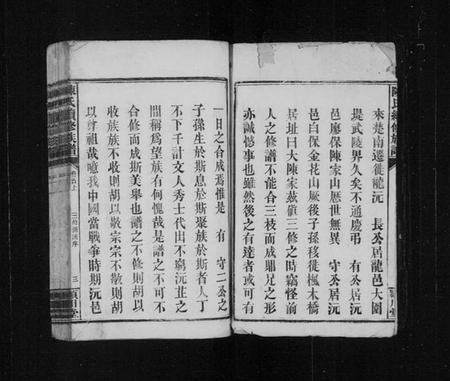 來楚南遷徙龍沅 長公居龍邑大圍
堤武陵界久矣不通慶弔 有公居沅
邑廖保陳家山歷世無異 守公居沅
邑白保金花山厥後子孫移徙楓木橋
居址曰大陳家蔹顧三修之時竊怪前
人之修譜不能合三枝而成鼎足之形
亦誠憾事也雖然後之有達者或可有
一日之合成焉惟是 有守二公之
子孫生於斯息於斯聚族於斯者人丁
不下千計文人秀士代田不窮沅芷之
間稱為望族有何愧哉是譜之不可不
合修而成斯美舉也譜之不修則胡以
收族族不收則胡以敬宗宗不敬則胡
以尊祖哉噫我中國當戰爭時期沅邑
陳氏續修族譜
卷首上
三修譜序
三
潁川堂